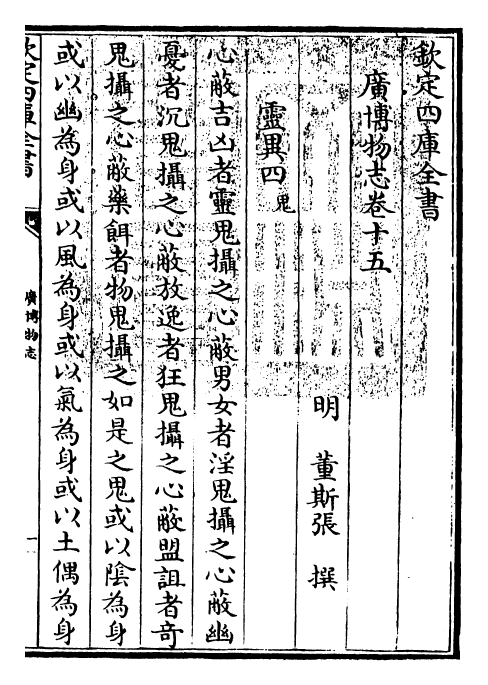 欽定四庫全書
廣博物志卷十五
明 董斯張 撰
靈異四鬼
心蔽吉凶者靈鬼攝之心蔽男女者淫鬼攝之心蔽幽
憂者沉鬼攝之心蔽放逸者狂鬼攝之心蔽盟詛者奇
鬼攝之心蔽藥餌者物鬼攝之如是之鬼或以陰為身
或以幽為身或以風為身或以氣為身或以土偶為身
欽定四庫全書
廣博物志
一